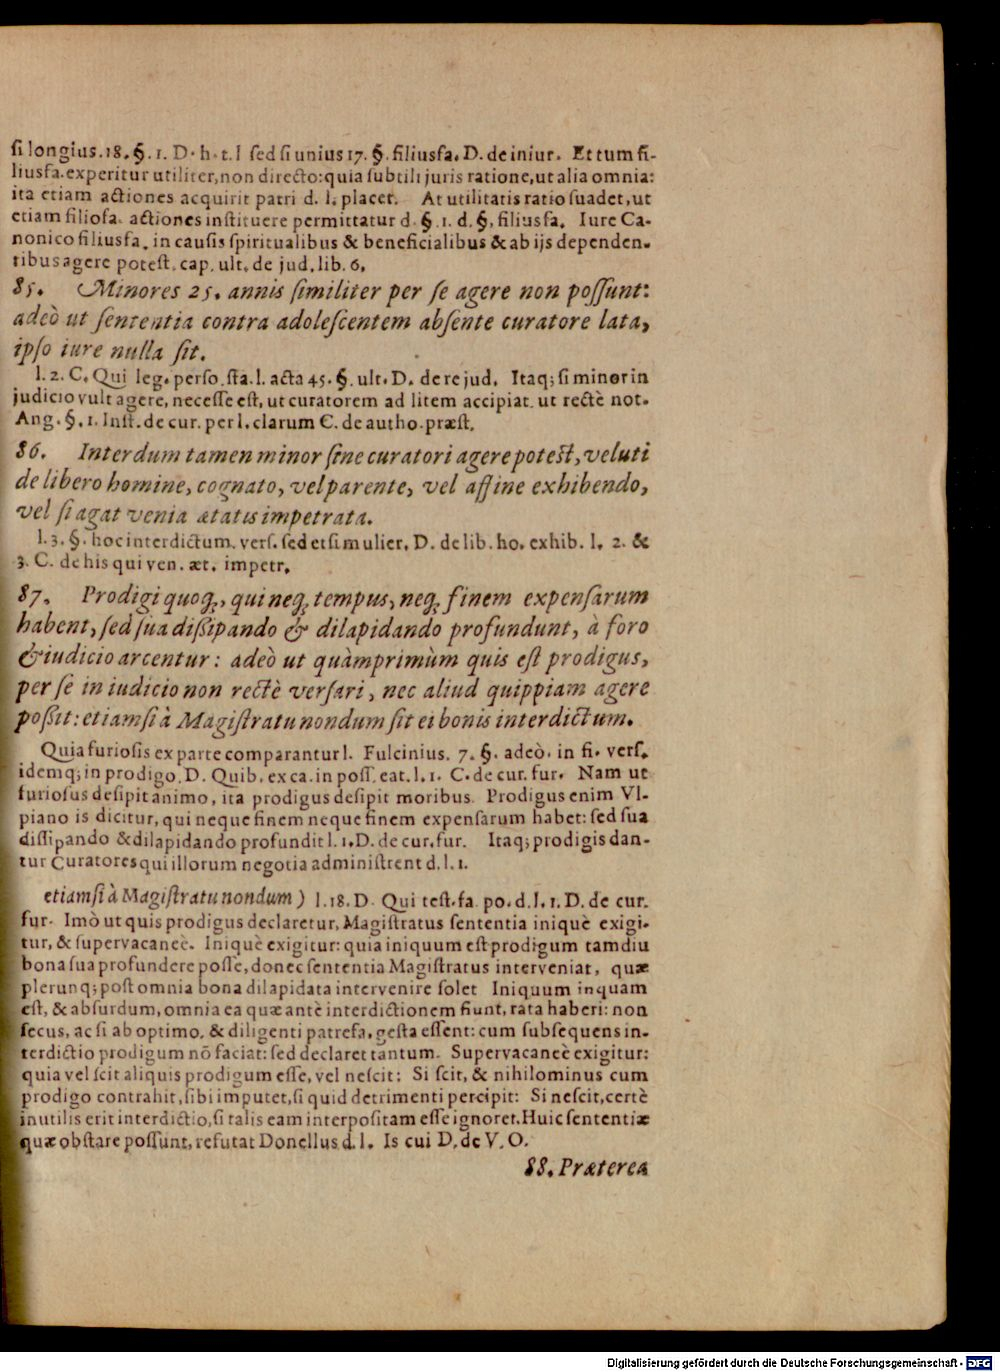 si longius. 18. §. 1. D. h. t. l sed si unius 17. §. filiusfa. D. de iniur. Et tum fi-
liusfa. experitur utiliter, non directo: quia subtili juris ratione, ut alia omnia:
ita etiam actiones acquirit patri d. l. placet. At utilitatis ratio suadet, ut
etiam filiofa. actiones instituere permittatur d. §. 1. d. §. filiusfa. Iure Ca-
nonico filiusfa. in causis spiritualibus & beneficialibus & ab ijs dependen-
tibus agere potest. cap. ult. de jud. lib. 6.
85. Minores 25. annis similiter per se agere non possunt:
adeò ut sententia contra adolescentem absente curatore lata,
ipso iure nulla sit.
l. 2. C. Qui leg. perso. sta. l. acta 45. §. ult. D. de re jud. Itaq; si minor in
judicio vult agere, necesse est, ut curatorem ad litem accipiat. ut rectè not.
Ang. §. 1. Inst. de cur. per l. clarum C. de autho. præst.
86. Interdum tamen minor sine curatori agere potest, veluti
de libero homine, cognato, vel parente, vel affine exhibendo,
vel si agat venia ætatis impetrata.
l. 3. §. hoc interdictum. vers. sed et si mulier. D. de lib. ho. exhib. l. 2. &
3. C. de his qui ven. æt. impetr.
87. Prodigi quoq, qui neq, tempus, neq, finem expensarum
habent, sed sua dißipando & dilapidando profundunt, à foro
& iudicio arcentur: adeò ut quàmprimùm quis est prodigus,
per se in iudicio non rectè versari, nec aliud quippiam agere
poßit: etiamsi à Magistratu nondum sit ei bonis interdictum.
Quia furiosis ex parte comparantur l. Fulcinius. 7. §. adeò. in fi. vers.
idemq; in prodigo. D. Quib. ex ca. in poss. eat. l. 1. C. de cur. fur. Nam ut
furiosus desipit animo, ita prodigus desipit moribus. Prodigus enim Vl-
piano is dicitur, qui neque finem neque finem expensarum habet: sed sua
dissipando & dilapidando profundit l. 1. D. de cur. fur. Itaq; prodigis dan-
tur Curatores qui illorum negotia administrent d. l. 1.
etiamsi à Magistratu nondum) l. 18. D. Qui test. fa. po. d. l. 1. D. de cur.
fur. Imò ut quis prodigus declaretur, Magistratus sententia iniquè exigi-
tur, & supervacaneè. Iniquè exigitur: quia iniquum est prodigum tamdiu
bona sua profundere posse, donec sententia Magistratus interveniat, quæ
plerunq; post omnia bona dilapidata intervenire solet Iniquum inquam
est, & absurdum, omnia ea quæ antè interdictionem fiunt, rata haberi: non
secus, ac si ab optimo, & diligenti patrefa. gesta essent: cum subsequens in-
terdictio prodigum nō faciat: sed declaret tantum. Supervacaneè exigitur:
quia vel scit aliquis prodigum esse, vel nescit: Si scit, & nihilominus cum
prodigo contrahit, sibi imputet, si quid detrimenti percipit: Si nescit, certè
inutilis erit interdictio, si talis eam interpositam esse ignoret. Huic sententiæ
quæ obstare possunt, refutat Donellus d. l. Is cui D. de V. O.
88. Præterea
Digitalisierung gefördert durch die Deutsche Forschungsgemeinschaft - DFG